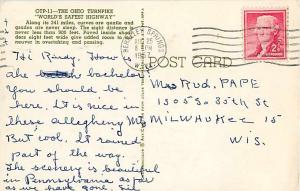 OTP-11—THE OHIO TURNPIKE
"WORLD'S SAFEST HIGHWAY"
Along its 241 miles, curves are gentle and
grades are never steep. The sight distance is
never less than 900 feet. Paved inside shoul-
ders eight feet wide give added room to ma-
neuver in overtaking and passing.
BERKELEY SPRINGS
PM
POST CARD
Hi Rudy. How is
the bachelor
You should be
here. It is nice in
these allegheny Mts
But cool. It rained
part of the way.
The scenery is beautiful
in Pennsylvania as far
as we have gone.
Mrs Rud. PAPE
1505 So 35th St
MILWAUKEE 15
WIS.